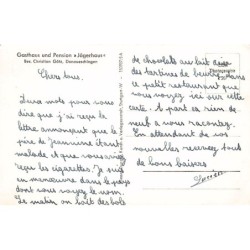 Gasthaus und Pension »Jägerhaus«
Bes. Christian Götz, Donaueschingen
Chers tous.
Deux mots pour vous
dire que j'ai reçu la
lettre annonçant que le
père de Jeannine étant
malade et que vous avez
reçu les cigarettes. Je suis
en manœuvre dans le pays
dont vous voyez le nom.
Le matin on boit des bols
de chocolats au lait avec
des tartines de beurre dans
ce petit restaurant que
vous voyez ici sur cette
carte. A part ça rien de
neuf à vous raconter.
En attendant de vos
nouvelles recevez tout
de bons baisers